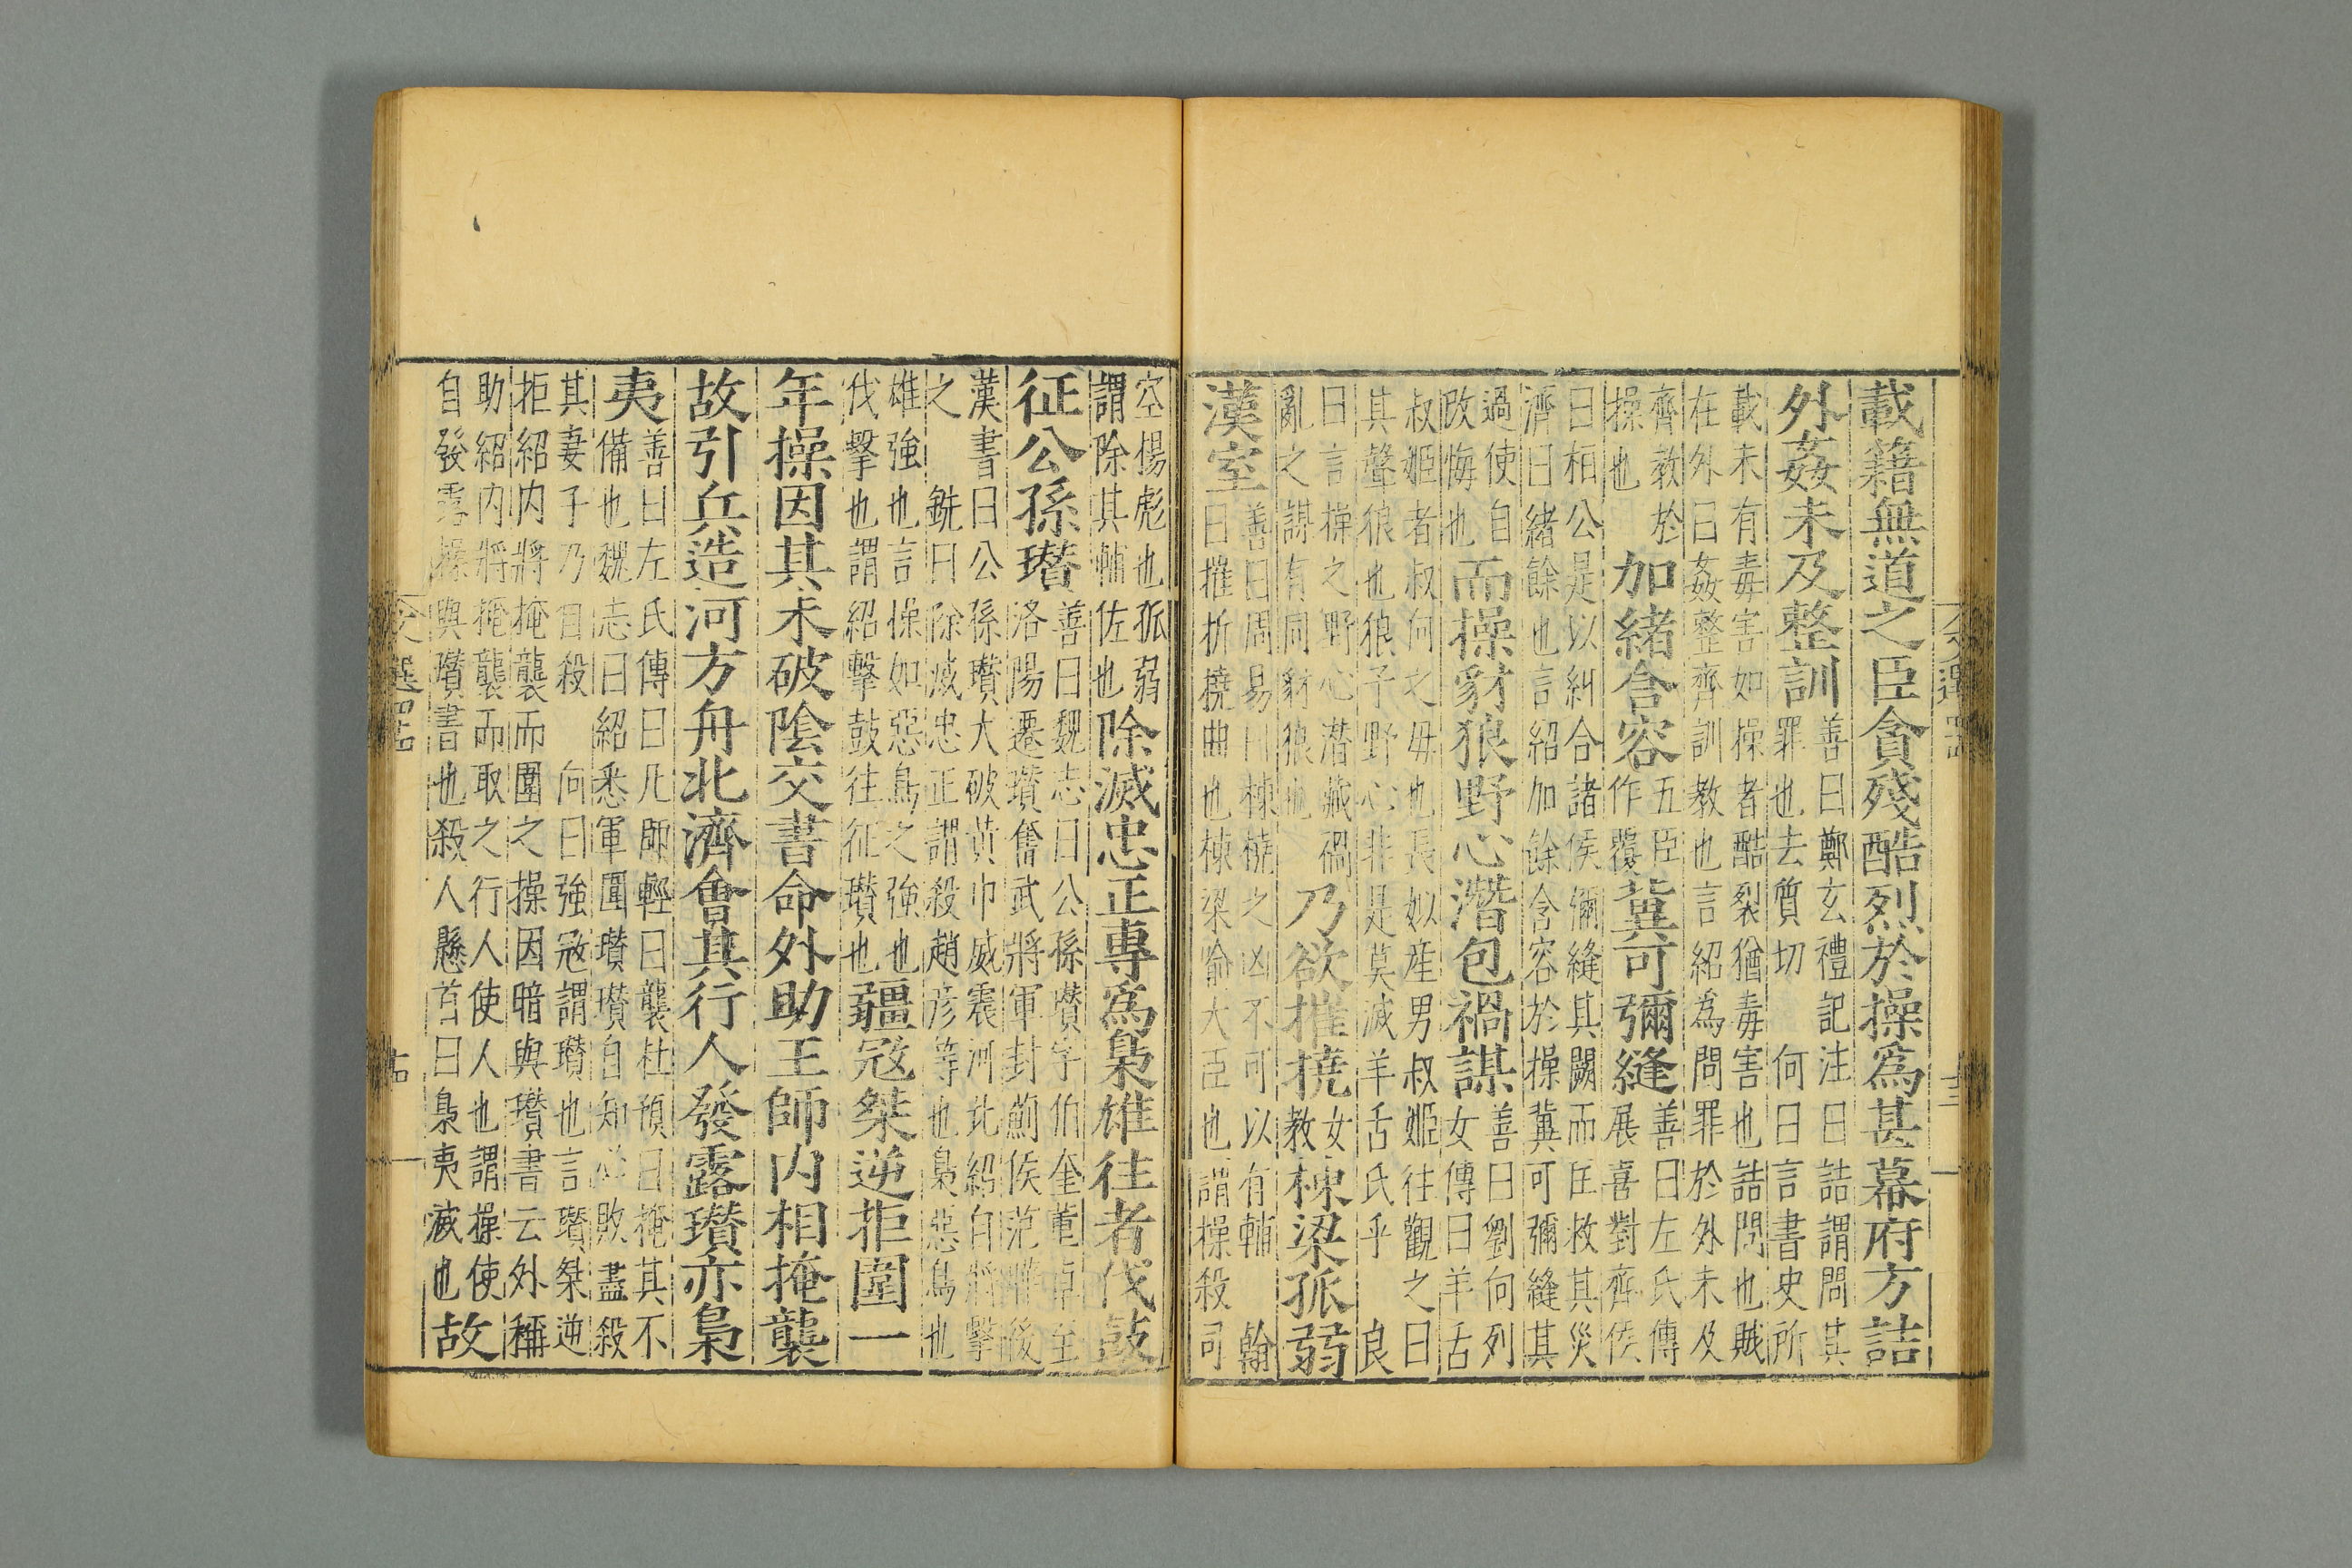 載籍無道之臣貪殘酷烈於操爲甚幕府方詰
外姦未及整訓善曰鄭玄禮記注曰詰謂問其罪也去質切 何曰言書史所
載未有毒害如操者酷裂猶毒害也詰問也賊
在外曰姦整齊訓教也言紹為問罪於外未及
齊教於操也加緒含容五臣作覆冀可彌縫善曰左氏傳展喜對齊侯
曰桓公是以糾合諸侯彌縫其闕而匡救其災
濟曰緒餘也言紹加餘含容於操冀可彌縫其
過使自改悔也而操豺狼野心潛包禍謀善曰劉向列女傳曰羊舌
叔姬者叔向之母也長姒産男叔姬往觀之曰
其聲狼也狼子野心非是莫滅羊舌氏乎 良
曰言操之野心潛藏禍亂之謀有同豺狼也乃欲摧撓女教棟梁孤弱
漢室善曰周易曰棟橈之凶不可以有輔 翰曰摧折撓曲也棟梁喻大臣也謂操殺司
空楊彪也孤弱謂除其輔佐也除滅忠正專爲梟雄往者伐鼓
征公孫瓚善曰魏志曰公孫瓚字伯奎董卓至洛陽遷瓚奮武將軍封薊侯范曄後
漢書曰公孫瓚大破黃巾威震河北紹自將擊
之 銑曰除滅忠正謂殺趙彦等也梟惡鳥也
雄強也言操如惡鳥之強也伐擊也謂紹擊鼓往征瓚也疆寇桀逆拒圍一
年操因其未破陰交書命外助王師内相掩襲
故引兵造河方舟北濟會其行人發露瓚亦梟
夷善曰左氏傳曰凡師輕曰襲杜預曰掩其不備也魏志曰紹悉軍圍瓚瓚自知必敗盡殺
其妻子乃自殺 向曰強寇謂瓚也言瓚桀逆
拒紹内將掩襲而圍之操因暗與瓚書云外稱
助紹内將掩襲而取之行人使人也謂操使自發露操與瓚書也殺人懸首曰梟夷滅也故